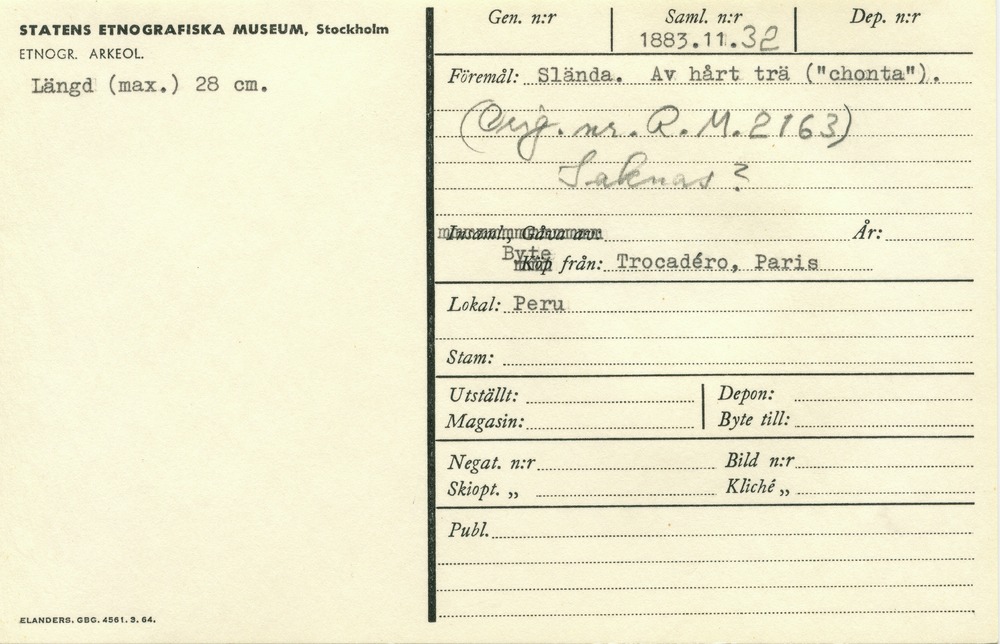 STATENS ETNOGRAFISKA MUSEUM, Stockholm
ETNOGR. ARKEOL.
Längd (max.) 28 cm.
Gen. n:r
Saml. n:r
1883.11.32
Dep. n:r
Föremål: Slända. Av hårt trä ("chonta").
(Orig. nr. R.M. 2163)
Saknas?
Insaml., Gåva av:
År:
Byte
Köp från: Trocadéro, Paris
Lokal: Peru
Stam:
Utställt:
Depon:
Magasin:
Byte till:
Negat. n:r
Bild n:r
Skiopt. „
Kliché „
Publ.
ELANDERS. GBG. 4561. 3. 64.